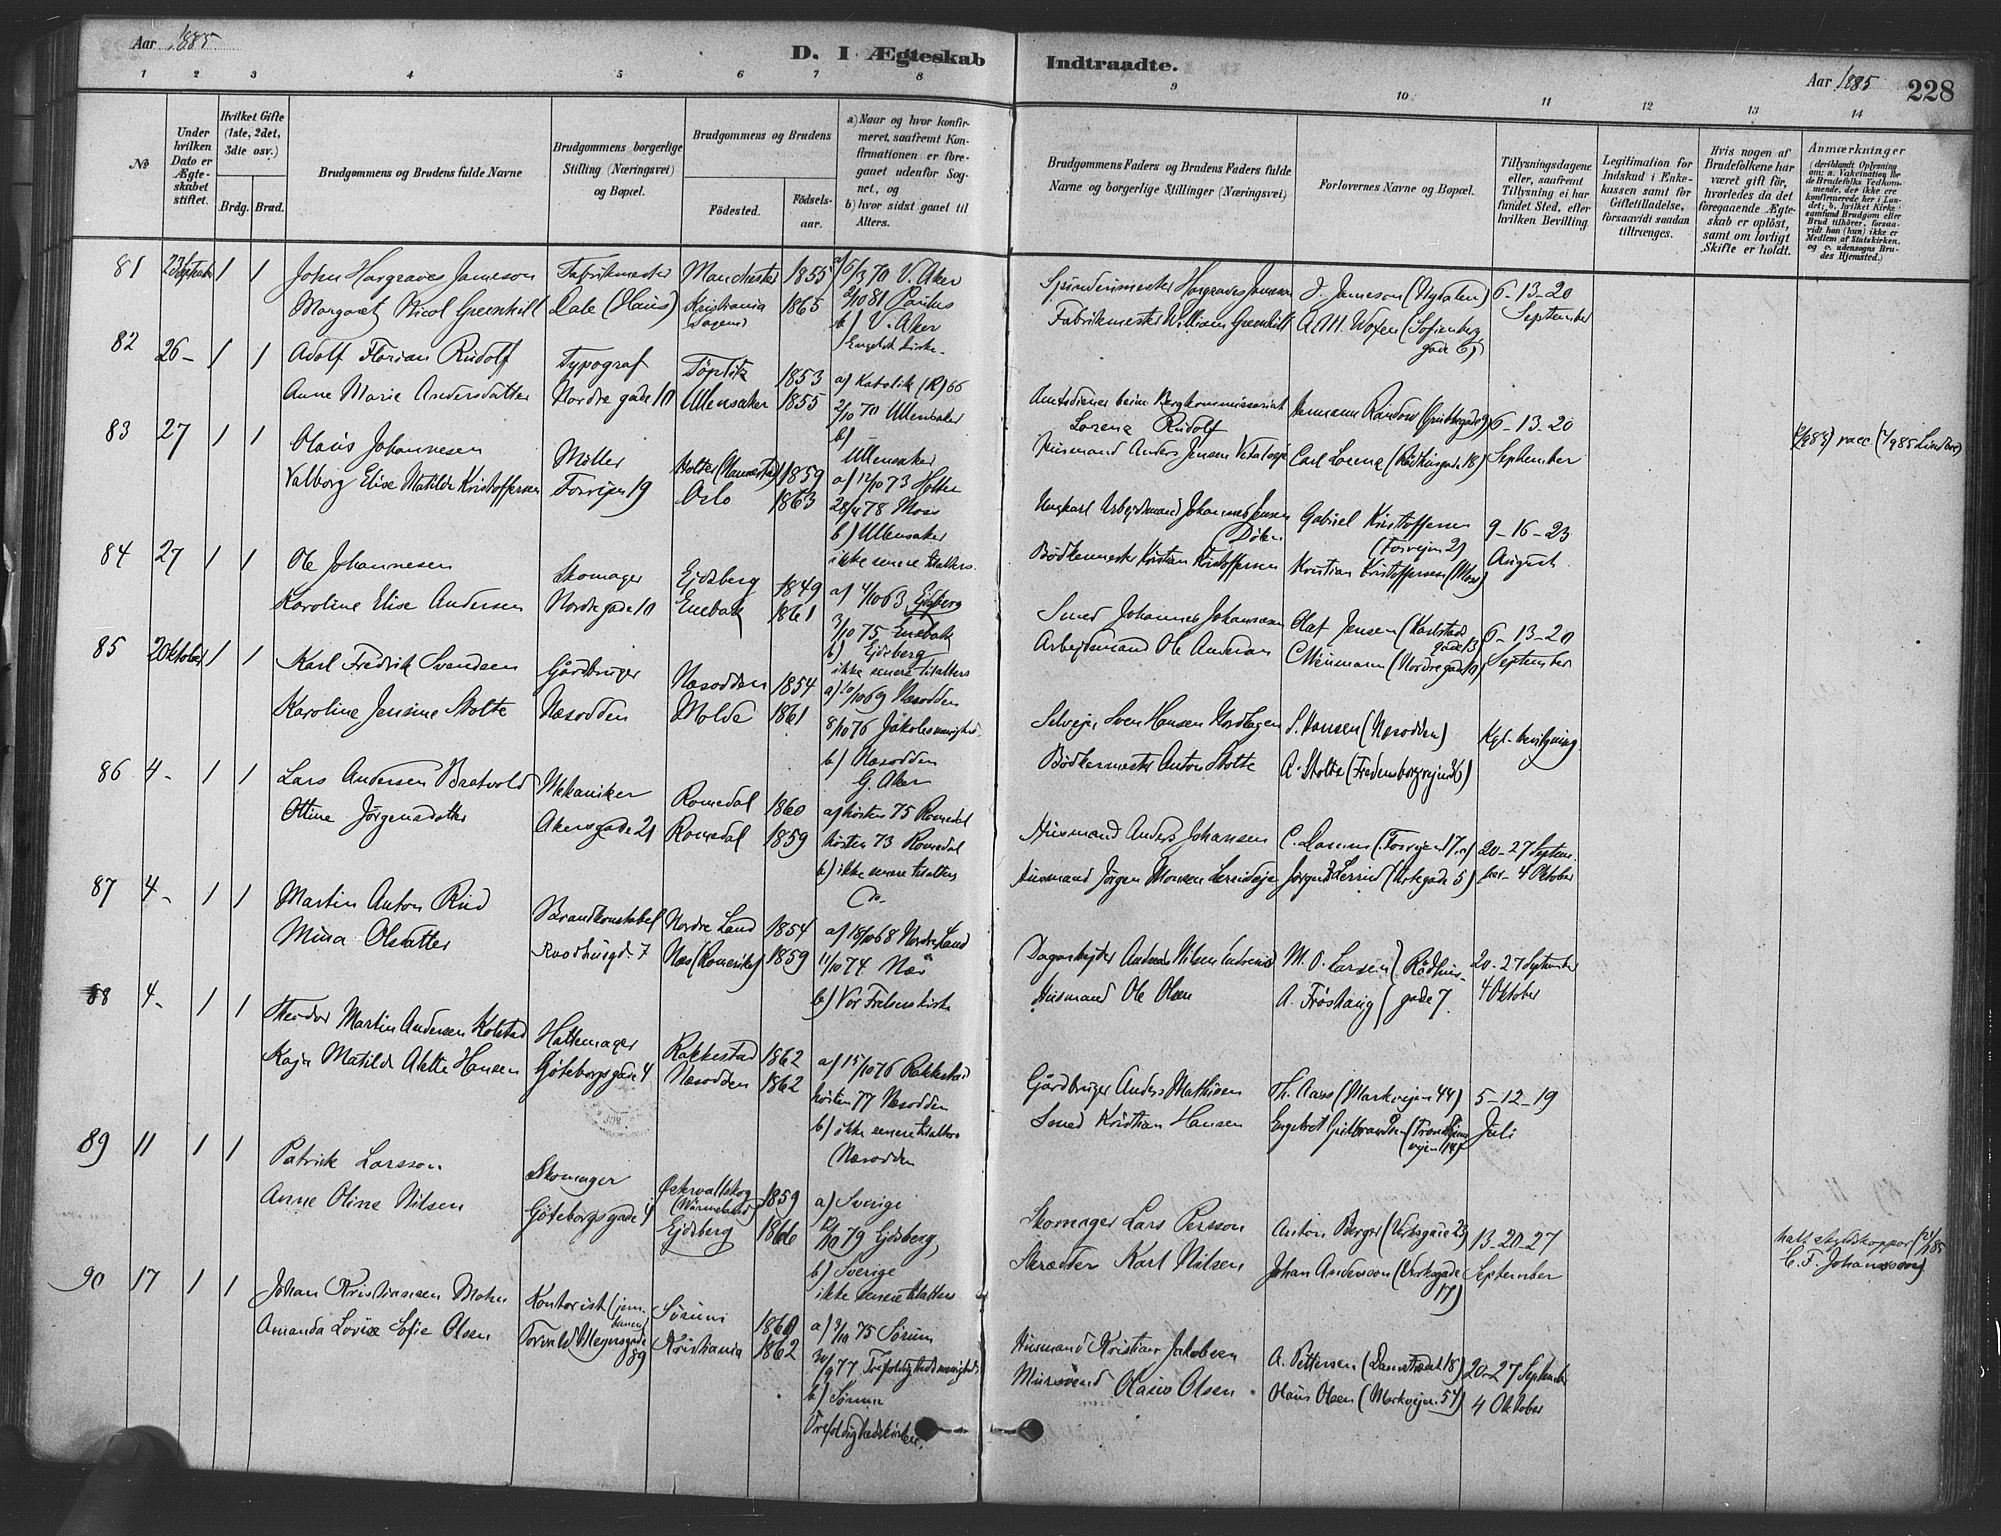 Aar 1885
D. I Ægteskab Indtraadte.
Aar 1885 228
1 2 3 4 5 6 7 8 9 10 11 12 13 14
№
Under hvilken Dato er Ægteskabet stiftet.
Hvilket Gifte (1ste, 2det, 3die osv.)
Brdg. Brud.
Brudgommens og Brudens fulde Navne
Brudgommens borgerlige Stilling (Næringsvei) og Bopæl.
Brudgommens og Brudens
Fødested.
Fødselsaar.
a) Naar og hvor konfirmeret, saafremt Konfirmationen er foregaaet udenfor Sognet, og
b) hvor sidst gaaet til Alters.
Brudgommens Faders og Brudens Faders fulde Navne og borgerlige Stillinger (Næringsvei)
Forlovernes Navne og Bopæl.
Tillysningsdagene eller, saafremt Tillysning ei har fundet Sted, efter hvilken Bevilling.
Legitimation for Indskud i Enkekassen samt for Giftetilladelse, forsaavidt saadan tiltrænges.
Hvis nogen af Brudefolkene har været gift før, hvorledes da det foregaaende Ægteskab er opløst, samt om lovligt Skifte er holdt.
Anmærkninger
(deriblandt Oplysning om: a. Vakcination for de Brudefolks Vedkommende, der ikke ere konfirmerede her i Landet; b. hvilket Kirkesamfund Brudgom eller Brud tilhører, forsaavidt han (hun) ikke er Medlem af Statskirken, og c. udensogns Brudes Hjemsted.)
81 23 September 1 1 John Hargraves Jameson Fabrikmester Manchester 1855 a) 6/3 70 V. Aker
Margaret Nicol Greenhill Dale (Haus) Kristiania 1865 2/10 81 Paulus
b) V. Aker
Engelsk Kirke
Hargraves Jameson J. Jameson (Nydalen) 6-13-20
Fabrikmester William Greenhill A. M. Woxen (Sofienberg gade 6) September
82 26- 1 1 Adolf Florian Rudolf Typograf Töplitz 1853 a) Katolik (R) 66
Anne Marie Andersdatter Nordregade 10 Ullensaker 1855 2/10 70 Ullensaker
b) -
Ullensaker
Amtsdiener beim Bergkommissariat Lorenz Rudolf Hermann Randow 6-13-20
Husmand Anders Jensen Carl Lorenz (Rådhusgade 18) September
83 27 1 1 Olaus Johannesen Møller Holter (Nannestad) 1859 a) 12/10 73 Holter
Valborg Elise Matilde Kristoffersen Fosvejen 19 Oslo 1863 28/4 78 Moss
b) Ullensaker
ikke senere tilalters
Ungkarl Arbejdsmand Johannes Jensen Gabriel Kristoffersen (Fosvejen 21) 9-16-23
Bødkermester Kristian Kristoffersen Kristian Kristoffersen (Moss) August
84 27 1 1 Ole Johannesen Skomager Ejdsberg 1849 a) 4/10 63 Ejdsberg
Karoline Elise Andersen Nordregade 10 Enebak 1861 3/10 75 Enebak
b) Ejdsberg
ikke senere tilalters
Smed Johannes Johannesen Olaf Jensen (Karlstadgade 13) 6-13-20
Arbejdsmand Ole Andersen C Neumann (Nordregade 10) September
85 2 Oktober 1 1 Karl Fredrik Svendsen Gårdbruger Næsodden 1854 a) 10/10 69 Næsodden
Karoline Jensine Stolte Næsodden Molde 1861 8/10 76 Jakobs menighed
b) Næsodden
G. Aker
Selvejer Sven Hansen Nordhagen S. Hansen (Næsodden) Kgl. bevilgning
Bødkermester Anton Stolte A. Stolte (Fredensborgvejen 36)
86 4- 1 1 Lars Andersen Bratvold Mekaniker Romedal 1860 a) høsten 75 Romedal
Ottine Jørgensdatter Akersgade 21 Romedal 1859 høsten 73 Romedal
b) ikke senere tilalters
Husmand Anders Johansen C. Damm (Fosvejen 17) 20-27 September
Husmand Jørgen Monsen 4 Oktober
87 4- 1 1 Martin Anton Rud Brandkonstabel Nordre Land 1854 a) 18/10 68 Nordre Land
Mina Olsdatter Raadhusgd 7 Næs (Romerike) 1859 11/10 74 Næs
b) Vor Frelsers kirke
Dagarbejder Andreas Nilsen M. O. Larsen Rådhus- 20-27 September
Husmand Ole Olsen A. Frøshaug gade 7. 4 Oktober
88 4- 1 1 Theodor Martin Andersen Kolstad Hattemager Rakkestad 1862 a) 15/10 76 Rakkestad
Kaja Matilde Alette Hansen Göteborgsgade 4 Næsodden 1862 høsten 77 Næsodden
b) ikke senere tilalters
Næsodden
Gårdbruger Anders Mathisen Th. Aass (Markvejen 44) 5-12-19
Smed Kristian Hansen Engebret Gulbrandsen (Trondhjemsvejen) Juli
89 11 1 1 Patrik Larsson Skomager Østervallskog (Wärmeland) 1859 a) Sverige
Anne Oline Nilsen Göteborgsgade 4 Ejdsberg 1866 12/10 79 Ejdsberg
b) Sverige
ikke senere tilalters
Skomager Lars Persson Anton Berger (Urtegade 29) 13-20-27
Skrædder Karl Nilsen Johan Andersson (Urtegade 17) September
C. F. Johansson)
90 17 1 1 Johan Kristiansen Moen Kontorist (jernbanen) Sørum 1860 a) 3/10 75 Sørum
Amanda Lovise Sofie Olsen Torvald Meyersgade 89 Kristiania 1862 30/9 77 Trefoldighedsmenighed
b) Sørum
Trefoldighedskirken.
Husmand Kristian Jakobsen A. Pettersen (Damstrædet 18) 20-27 September
Mursvend Olaus Olsen Olaus Olsen (Markvejen 54) 4 Oktober